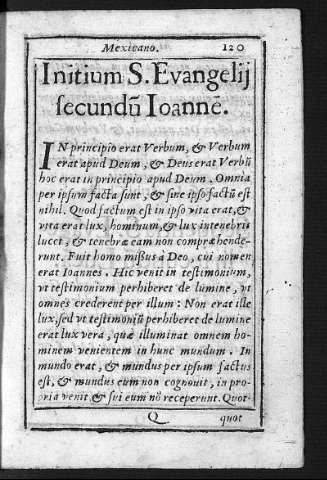 Mexicano. 120
Initium S. Evangelij
secundũ Ioannẽ.
IN principio erat Verbum, & Verbum
erat apud Deum, & Deus erat Verbũ
hoc erat in principio apud Deum. Omnia
per ipsum facta sunt, & sine ipso factũ est
nihil. Quod factum est in ipso vita erat, &
vita erat lux, hominum, & lux in tenebris
lucet, & tenebræ eam non compræhende-
runt. Fuit homo missus a Deo, cui nomen
erat Ioannes. Hic venit in testimonium,
vt testimonium perhiberet de lumine, vt
omnes crederent per illum: Non erat ille
lux, sed vt testimoniũ perhiberet de lumine
erat lux vera, quæ illuminat omnem ho-
minem venientem in hunc mundum. In
mundo erat, & mundus per ipsum factus
est, & mundus eum non cognouit, in pro-
pria venit & sui eum nõ receperunt. Quot-
Q quot